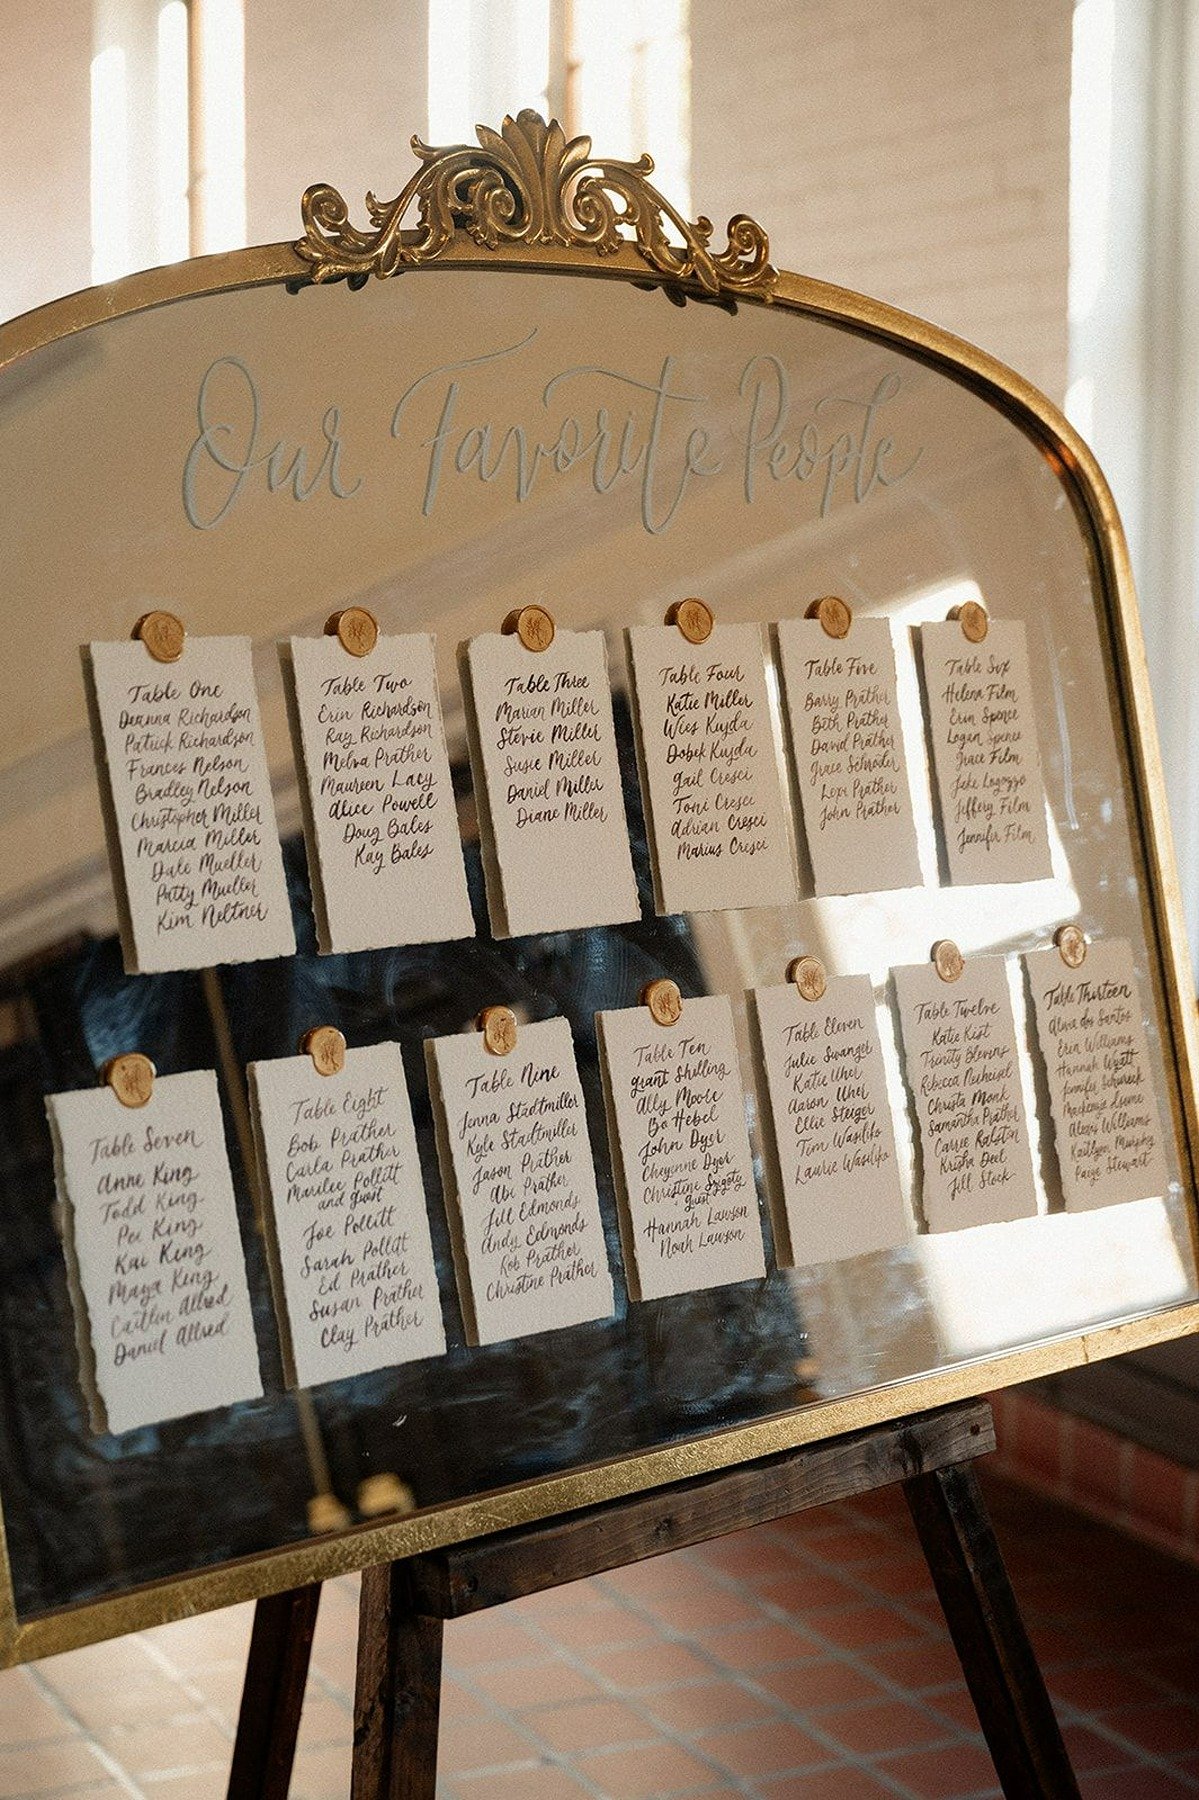 Our Favorite People
Table One
Deanna Richardson
Patrick Richardson
Frances Nelson
Bradley Nelson
Christopher Miller
Marcia Miller
Dale Mueller
Patty Mueller
Kim Neltner
Table Two
Erin Richardson
Ray Richardson
Melva Prather
Maureen Lacy
Alice Powell
Doug Bales
Kay Bales
Table Three
Marian Miller
Stevie Miller
Susie Miller
Daniel Miller
Diane Miller
Table Four
Katie Miller
Wies Kujda
Dobek Kujda
Gail Cresci
Toni Cresci
Adrian Cresci
Marius Cresci
Table Five
Barry Prather
Beth Prather
David Prather
Grace Schrader
Lexi Prather
John Prather
Table Six
Helena Film
Erin Spence
Logan Spence
Grace Film
Jake Logozzo
Jeffery Film
Jennifer Film
Table Seven
Anne King
Todd King
Pei King
Kai King
Maya King
Caitlin Allred
Daniel Allred
Table Eight
Bob Prather
Carla Prather
Marilee Pollitt
and guest
Joe Pollitt
Sarah Pollitt
Ed Prather
Susan Prather
Clay Prather
Table Nine
Jenna Stadtmiller
Kyle Stadtmiller
Jason Prather
Abi Prather
Jill Edmonds
Andy Edmonds
Rob Prather
Christine Prather
Table Ten
Grant Shilling
Ally Moore
Bo Hebel
John Dyer
Cheyenne Dyer
Christine
guest
Hannah Lawson
Noah Lawson
Table Eleven
Julie Swanger
Katie Uher
Aaron Uher
Ellie Steiger
Tim Wasilko
Laurie Wasilko
Table Twelve
Katie Kist
Trinity Blevins
Rebecca Neiheisel
Christa Monk
Samantha Prather
Carrie Ralston
Krisha Deel
Jill Steck
Table Thirteen
Alina dos Santos
Erin Williams
Hannah Wyatt
Jennifer
Mackenzie
Alexis Williams
Kaitlyn
Paige Stewart